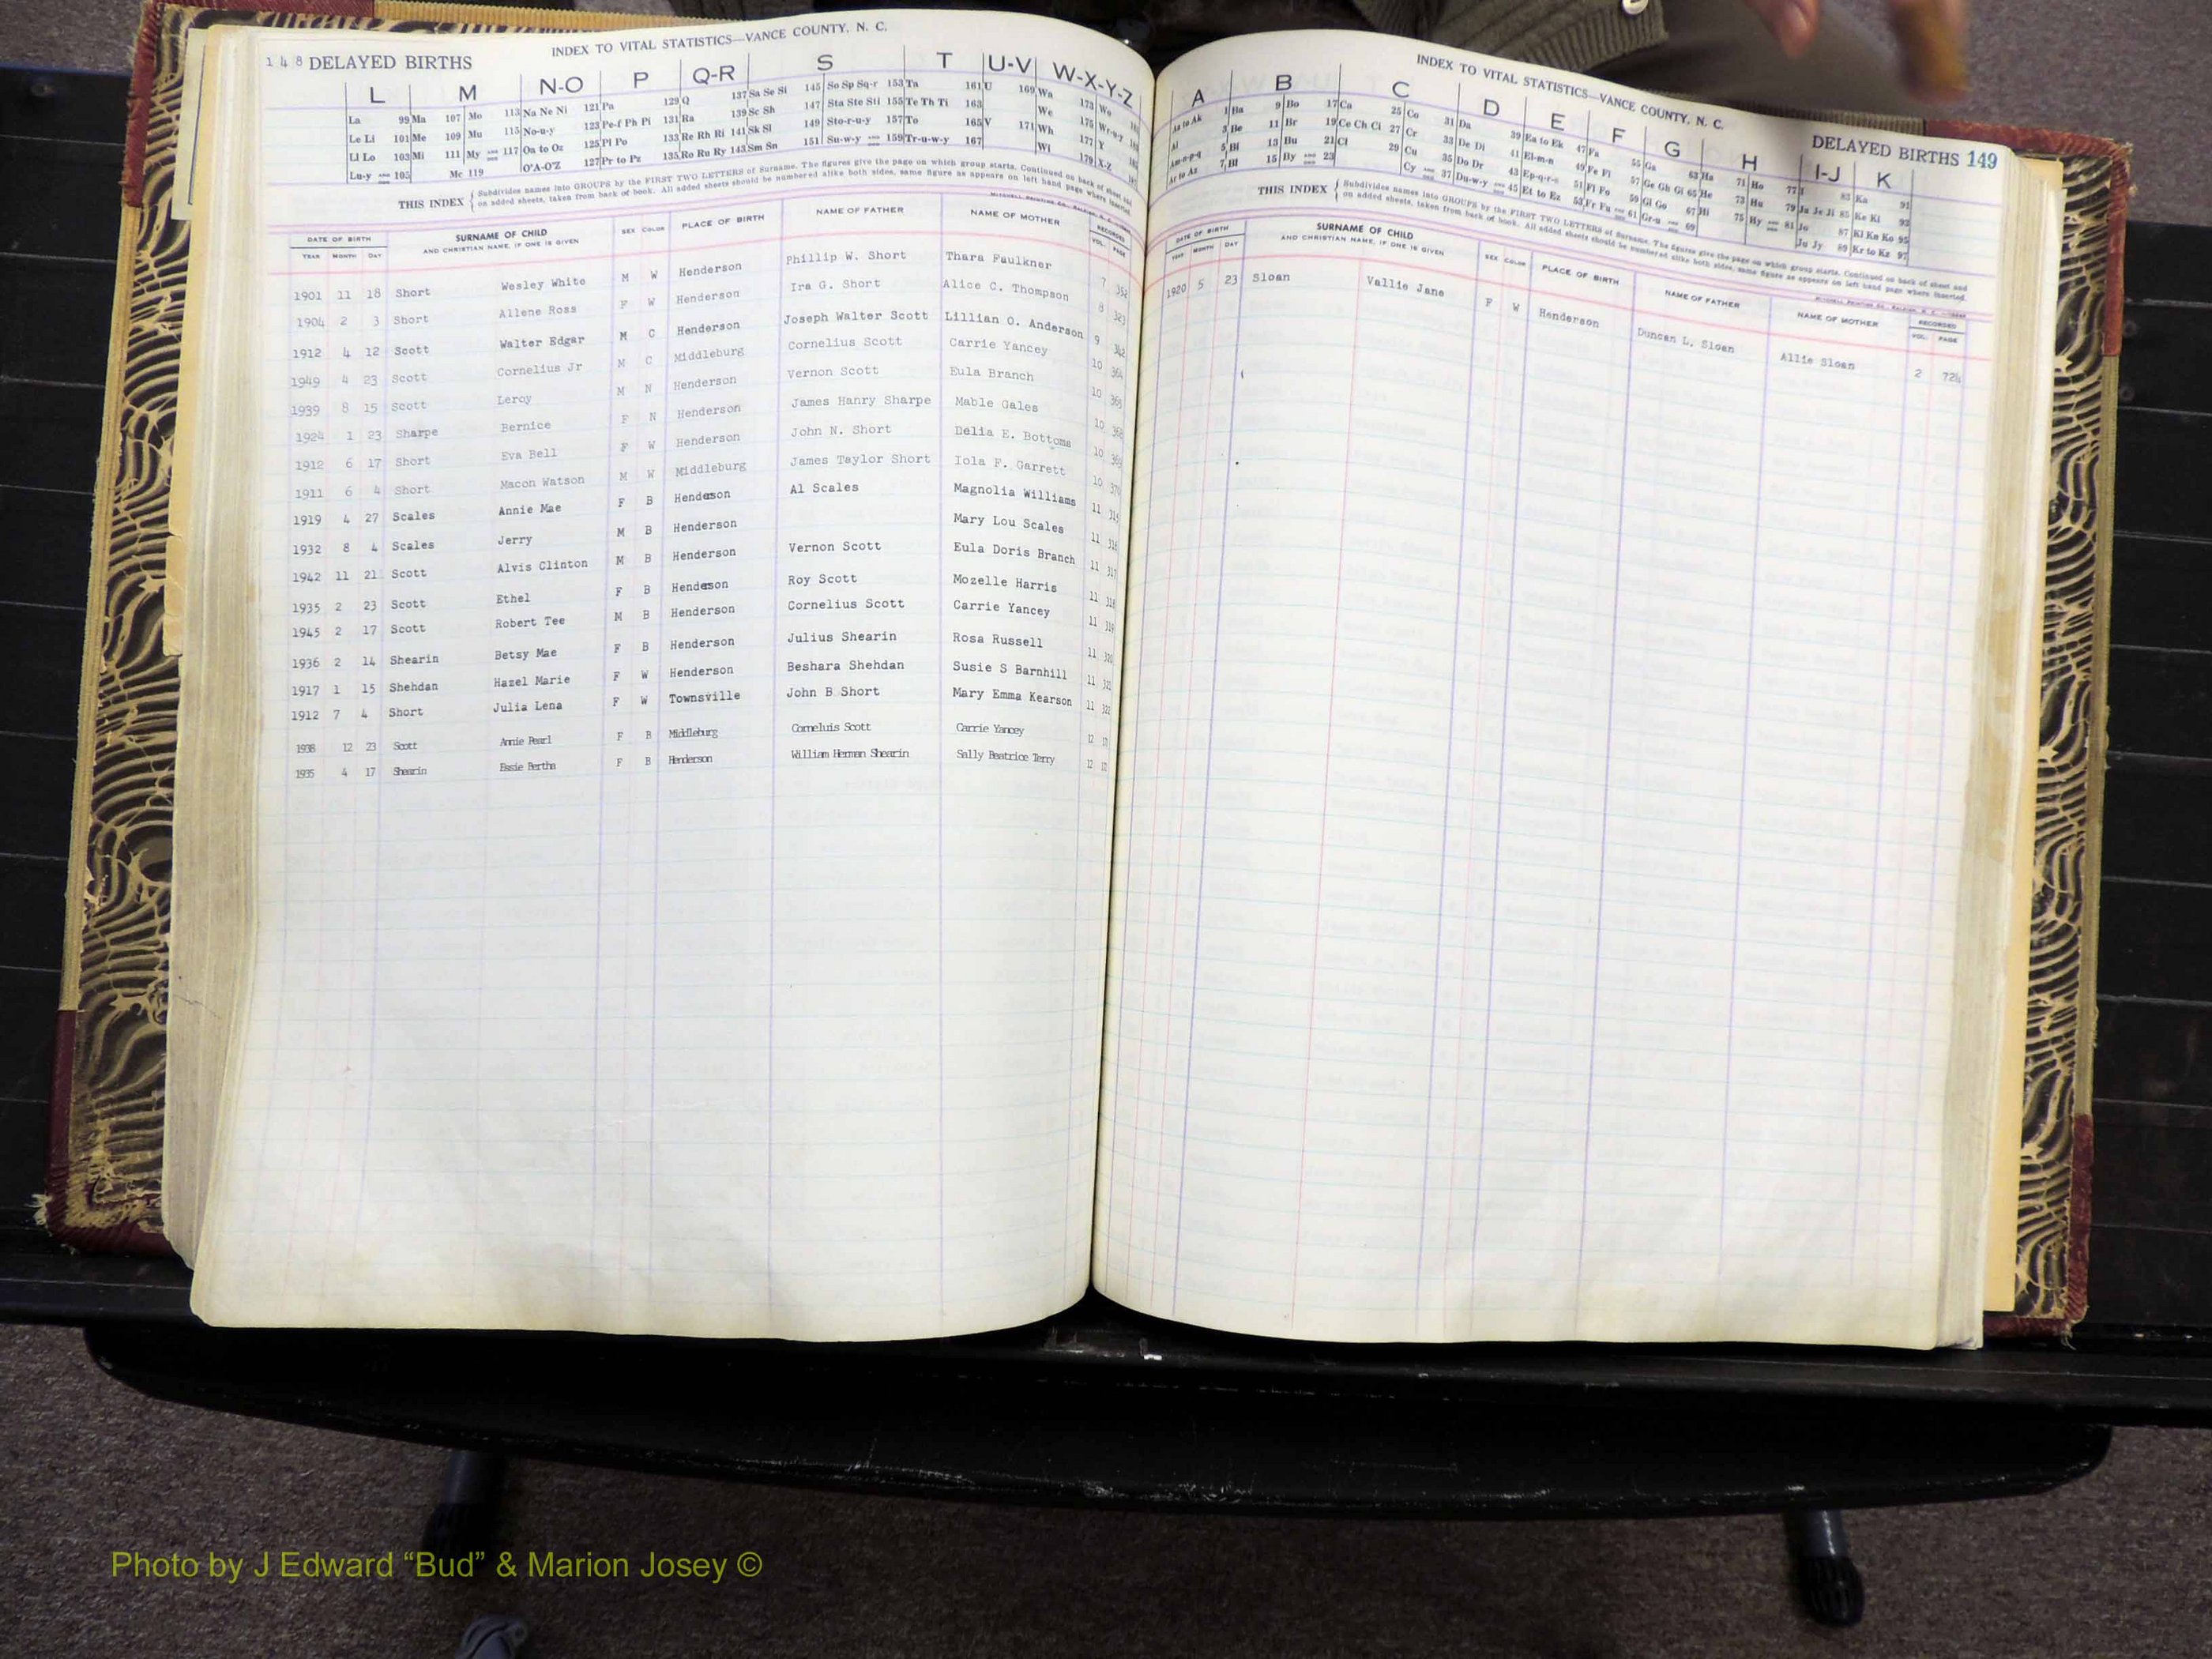 148 DELAYED BIRTHS
INDEX TO VITAL STATISTICS—VANCE COUNTY, N. C.
L M N-O P Q-R S T U-V W-X-Y-Z
La 99 Ma 107 Mo 113 Na Ne Ni 121 Pa 129 Q 137 Sa Se Si 145 So Sp Sq-r 153 Ta 161 U 169 Wa 173 Wo
Le Li 101 Me 109 Mu 115 No-u-y 123 Pe-f Ph Pi 131 Ra 139 Sc Sh 147 Sta Ste Sti 155 Te Th Ti 163 We 175 Wr-u-y
Ll Lo 103 Mi 111 My 117 Oa to Oz 125 Pl Po 133 Re Rh Ri 141 Sk Sl 149 Sto-r-u-y 157 To 165 V 171 Wh 177 Y
Lu-y 105 Mc 119 O'A-O'Z 127 Pr to Pz 135 Ro Ru Ry 143 Sm Sn 151 Su-w-y 159 Tr-u-w-y 167 Wi 179 X-Z
THIS INDEX { Subdivides names into GROUPS by the FIRST TWO LETTERS of Surname. The figures give the page on which group starts. Continued on back of sheet and
on added sheets, taken from back of book. All added sheets should be numbered alike both sides, same figure as appears on left hand page where inserted.
DATE OF BIRTH SURNAME OF CHILD SEX COLOR PLACE OF BIRTH NAME OF FATHER NAME OF MOTHER RECORDED
YEAR MONTH DAY AND CHRISTIAN NAME, IF ONE IS GIVEN VOL. PAGE
1901 11 18 Short Wesley White M W Henderson Phillip W. Short Thara Faulkner 7 352
1904 2 3 Short Allene Ross F W Henderson Ira G. Short Alice C. Thompson 8 323
1912 4 12 Scott Walter Edgar M C Henderson Joseph Walter Scott Lillian O. Anderson 9 342
1949 4 23 Scott Cornelius Jr M C Middleburg Cornelius Scott Carrie Yancey 10 364
1939 8 15 Scott Leroy M N Henderson Vernon Scott Eula Branch 10
1924 1 23 Sharpe Bernice F N Henderson James Hanry Sharpe Mable Gales 10
1912 6 17 Short Eva Bell F W Henderson John N. Short Delia E. Bottoms 10
1911 6 4 Short Macon Watson M W Middleburg James Taylor Short Iola F. Garrett 10
1919 4 27 Scales Annie Mae F B Henderson Al Scales Magnolia Williams 11
1932 8 4 Scales Jerry M B Henderson Mary Lou Scales 11 316
1942 11 21 Scott Alvis Clinton M B Henderson Vernon Scott Eula Doris Branch 11 317
1935 2 23 Scott Ethel F B Henderson Roy Scott Mozelle Harris 11 318
1945 2 17 Scott Robert Tee M B Henderson Cornelius Scott Carrie Yancey 11 319
1936 2 14 Shearin Betsy Mae F B Henderson Julius Shearin Rosa Russell 11 320
1917 1 15 Shehdan Hazel Marie F W Henderson Beshara Shehdan Susie S Barnhill 11
1912 7 4 Short Julia Lena F W Townsville John B Short Mary Emma Kearson 11 322
1938 12 23 Scott Annie Pearl F B Middleburg Corneluis Scott Carrie Yancey 12
1935 4 17 Shearin Essie Bertha F B Henderson William Herman Shearin Sally Beatrice Terry 12
INDEX TO VITAL STATISTICS—VANCE COUNTY, N. C.
DELAYED BIRTHS 149
A B C D E F G H I-J K
Aa to Ak 1 Ba 9 Bo 17 Ca 25 Co 31 Da 39 Ea to Ek 47 Fa 55 Ga 63 Ha 71 Ho 77 I 83 Ka 91
Al 3 Be 11 Br 19 Ce Ch Ci 27 Cr 33 De Di 41 El-m-n 49 Fe Fi 57 Ge Gh Gi 65 He 73 Hu 79 Ja Je Ji 85 Ke Ki 93
Am-n-p-q 5 Bi 13 Bu 21 Cl 29 Cu 35 Do Dr 43 Ep-q-r-s 51 Fl Fo 59 Gl Go 67 Hi 75 Hy 81 Jo 87 Kl Kn Ko 95
Ar to Az 7 Bl 15 By 23 Cy 37 Du-w-y 45 Et to Ez 53 Fr Fu 61 Gr-u 69 Ju Jy 89 Kr to Kz 97
THIS INDEX { Subdivides names into GROUPS by the FIRST TWO LETTERS of Surname. The figures give the page on which group starts. Continued on back of sheet and
on added sheets, taken from back of book. All added sheets should be numbered alike both sides, same figure as appears on left hand page where inserted.
DATE OF BIRTH SURNAME OF CHILD SEX COLOR PLACE OF BIRTH NAME OF FATHER NAME OF MOTHER RECORDED
YEAR MONTH DAY AND CHRISTIAN NAME, IF ONE IS GIVEN VOL. PAGE
1920 5 23 Sloan Vallie Jane F W Henderson Duncan L. Sloan Allie Sloan 2 724
Photo by J Edward “Bud” & Marion Josey ©